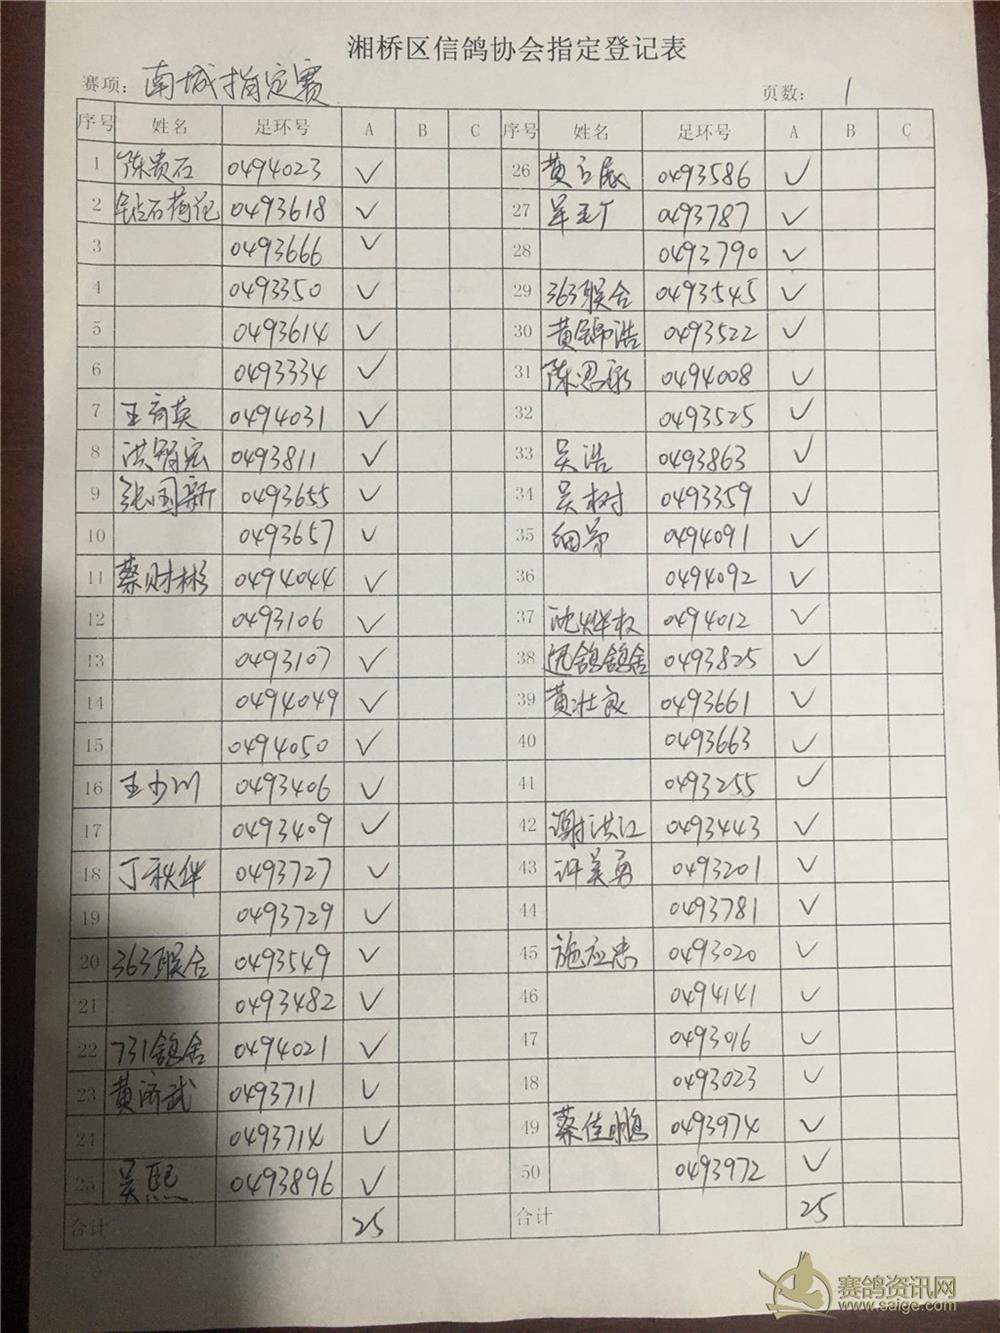 湘桥区信鸽协会指定登记表
赛项：南城指定赛 页数：1
序号 姓名 足环号 A B C 序号 姓名 足环号 A B C
1 陈贵石 0494023 ✓ 26 黄 0493586 ✓
2 钻石荷花 0493618 ✓ 27 0493787 ✓
3 0493666 ✓ 28 0493790 ✓
4 0493350 ✓ 29 363联合 0493545 ✓
5 0493614 ✓ 30 黄锦浩 0493522 ✓
6 0493334 ✓ 31 陈思 0494008 ✓
7 王 英 0494031 ✓ 32 0493525 ✓
8 洪智宏 0493811 ✓ 33 吴浩 0493863 ✓
9 张国新 0493655 ✓ 34 吴树 0493359 ✓
10 0493657 ✓ 35 细弟 0494091 ✓
11 蔡财彬 0494044 ✓ 36 0494092 ✓
12 0493106 ✓ 37 沈烨权 0494012 ✓
13 0493107 ✓ 38 迅鸽鸽舍 0493825 ✓
14 0494049 ✓ 39 黄壮良 0493661 ✓
15 0494050 ✓ 40 0493663 ✓
16 王少川 0493406 ✓ 41 0493255 ✓
17 0493409 ✓ 42 谢洪江 0493443 ✓
18 丁秋华 0493727 ✓ 43 许美勇 0493201 ✓
19 0493729 ✓ 44 0493781 ✓
20 363联合 0493549 ✓ 45 施应忠 0493020 ✓
21 0493482 ✓ 46 0494141 ✓
22 731鸽舍 0494021 ✓ 47 0493016 ✓
23 黄济武 0493711 ✓ 48 0493023 ✓
24 0493714 ✓ 49 蔡佳鹏 0493974 ✓
25 吴熙 0493896 ✓ 50 0493972 ✓
合计 25 合计 25
赛鸽资讯网
www.saige.com